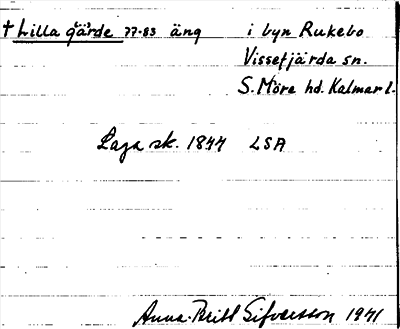 † Lilla gärde 77-83 äng i byn Rukebo
Vissefjärda sn.
S. Möre hd. Kalmar l.
Laga sk. 1844 LSA
Anna-Britt Sifversson 1941